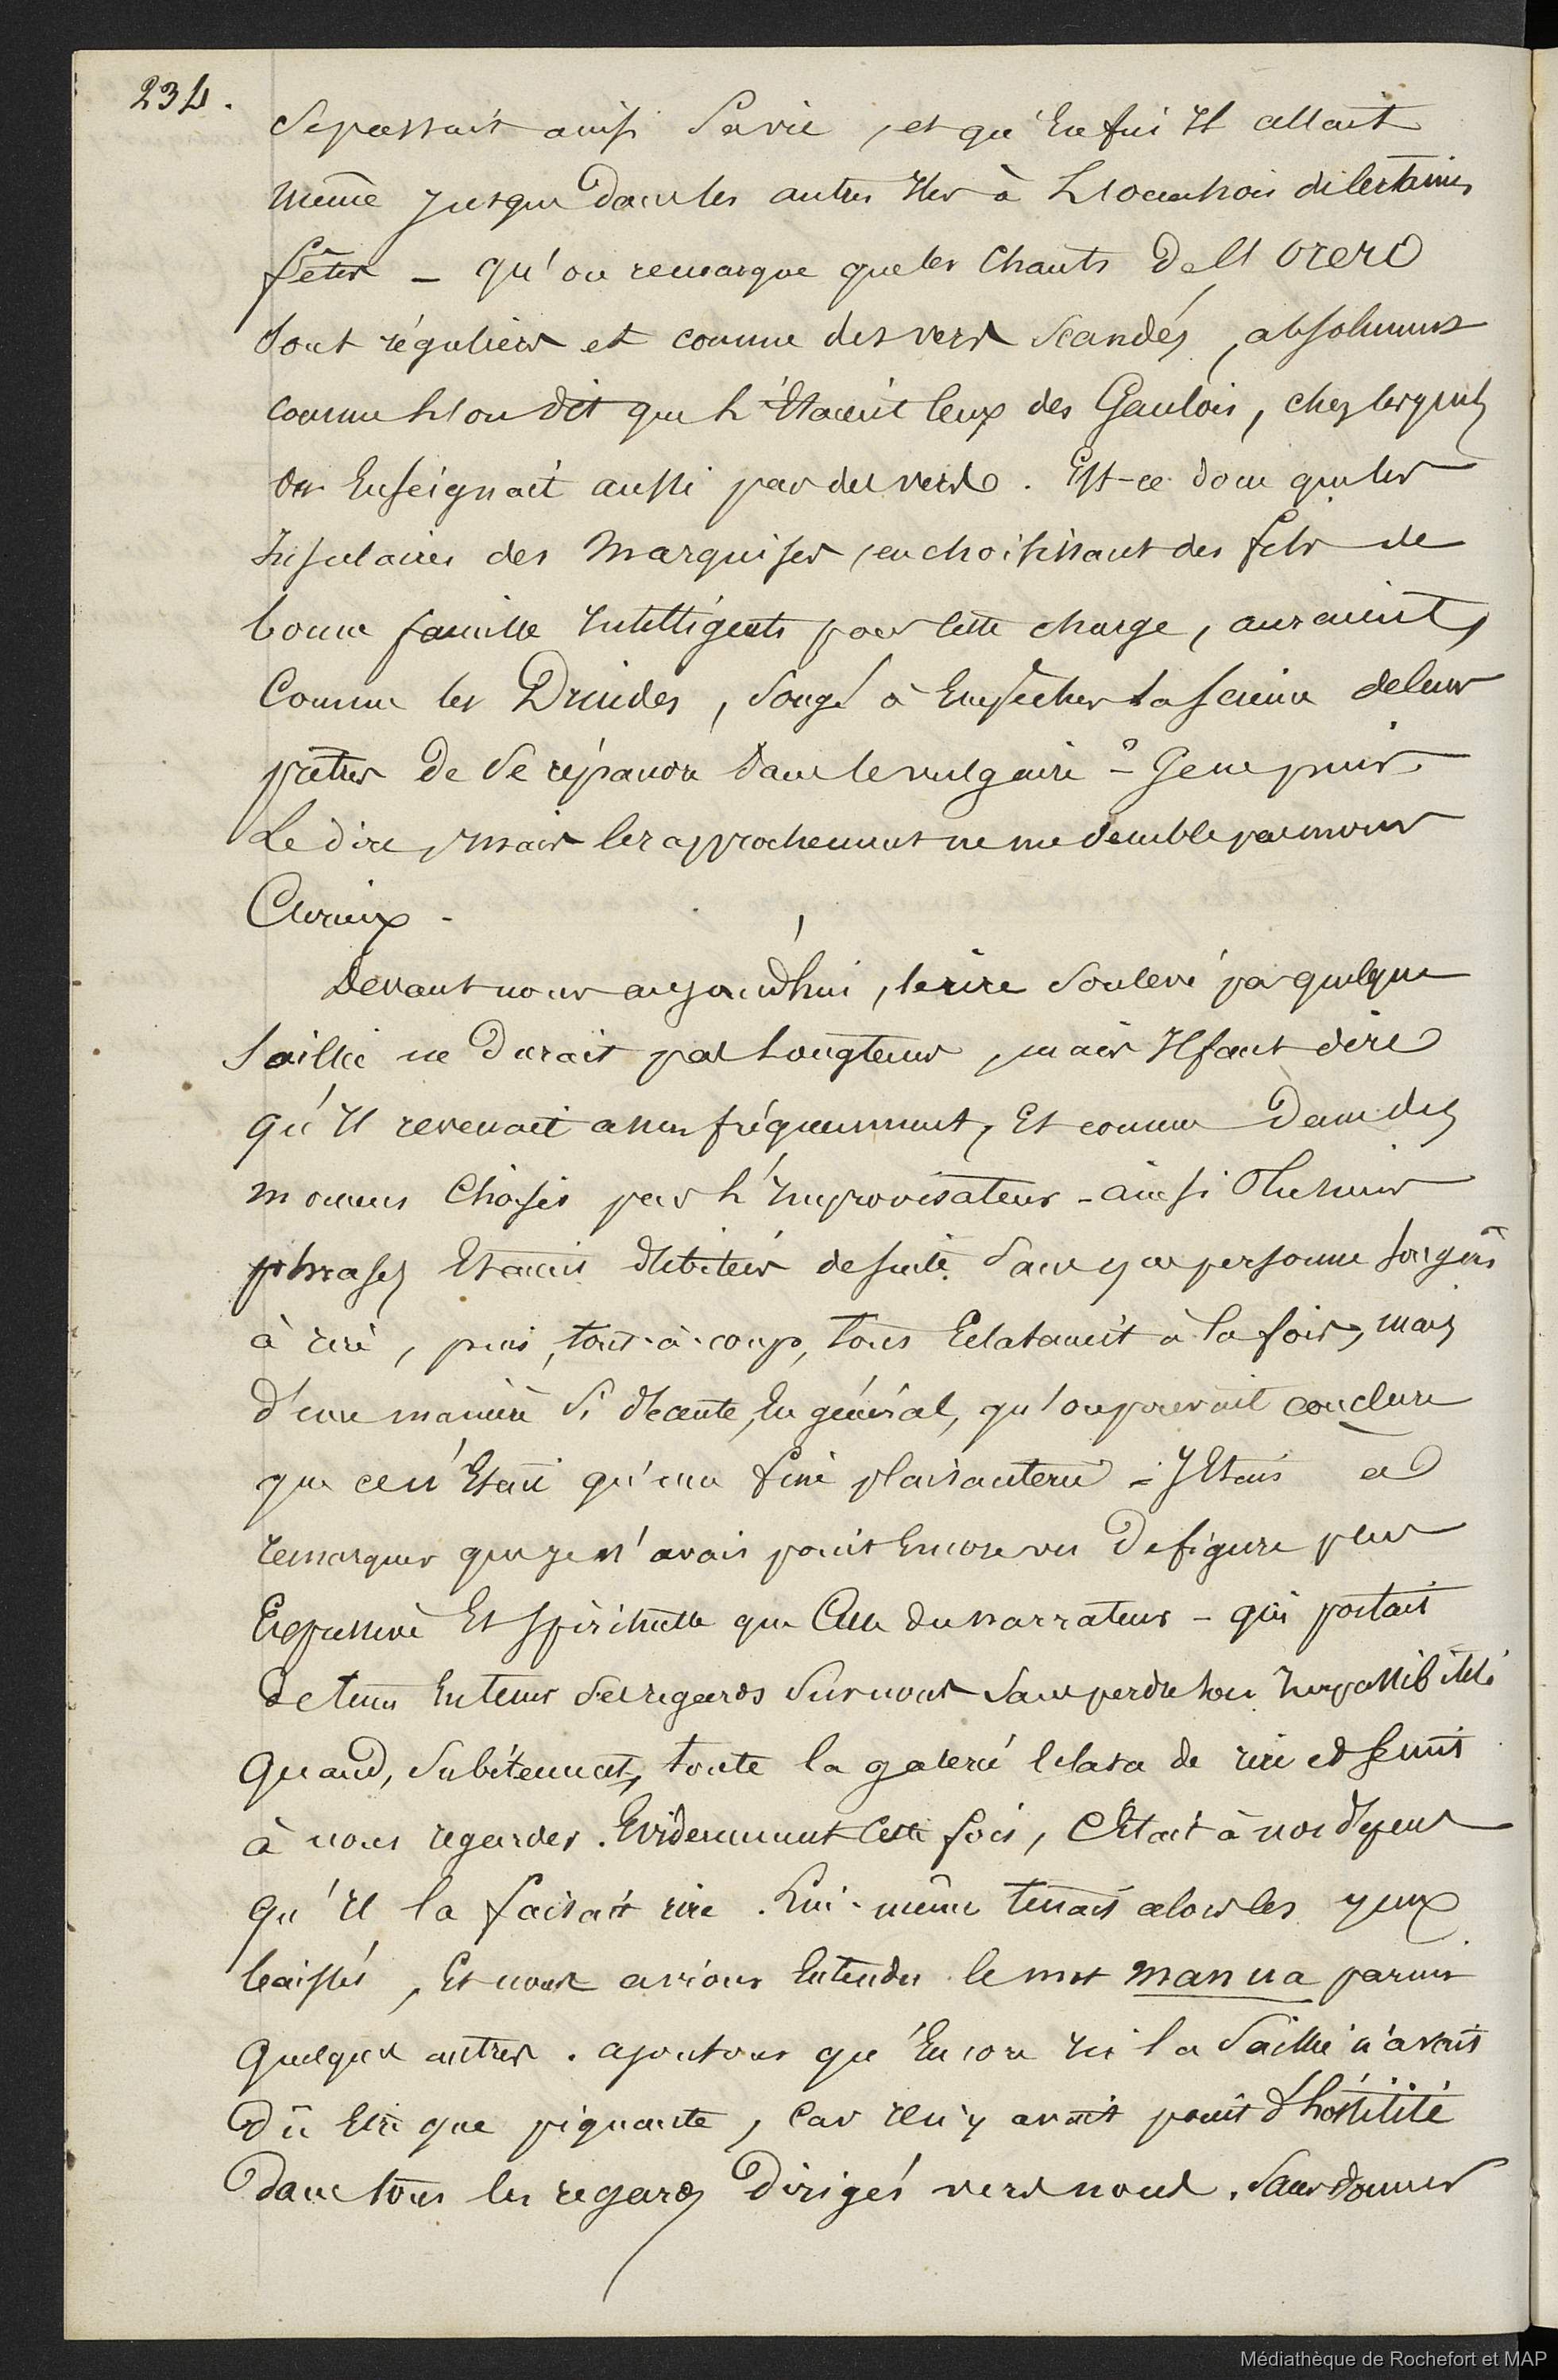 234.
Se passait ainsi Sa vie, et qu'Enfin Il allait
même jusque dans les autres Iles à L'occasion de certaines
fêtes - qu'on remarque que les Chants de l'Orero
sont réguliers et comme des vers Scandés, absolument
comme l'on dit que l'Etaient ceux des Gaulois, chez lesquels
on Enseignait aussi par des vers. Est-ce donc que les
Insulaires des Marquises, en choisissant des fils de
bonne famille Intelligents pour cette charge, auraient,
Comme les Druides, Songé à Empêcher la science de leurs
prêtres de Se répandre dans le vulgaire ? - Je ne puis
Le dire, mais le rapprochement ne me Semble pas moins
Curieux -
Devant nous aujourd'hui, le rire Soulevé par quelque
Saillie ne Durait pas Longtems, mais Il faut dire
qu'Il revenait assez fréquemment, Et comme Dans des
momens Choisis par L'Improvisateur - ainsi Plusieurs
phrases Etaient débitées de suite Sans que personne Songeât
à rire, puis, tout-à-coup, tous Eclataient à la fois, mais
d'une manière Si décente, En général, qu'on pouvait conclure
que ce n'Etait qu'une fine plaisanterie - J'Etais à
remarquer que je n'avais point Encore vu De figure plus
Expressive Et Spirituelle que Celle du narrateur - qui portait
De tems En tems Ses regards Sur nous Sans perdre Son Impassibilité
Quand, Subitement, toute la galerie Eclata de rire et Se mit
à nous regarder. Evidemment Cette fois, C'Etait à nos dépens
qu'Il la faisait rire. Lui-même tenait alors les yeux
baissés, Et nous avions Entendu le mot manua parmi
Quelques autres. ajoutons qu'Encore Ici la Saillie n'avait
Dû Etre que piquante, Car Il n'y avait point d'hostilité
Dans tous les regards Dirigés vers nous. Sans donner
Médiathèque de Rochefort et MAP